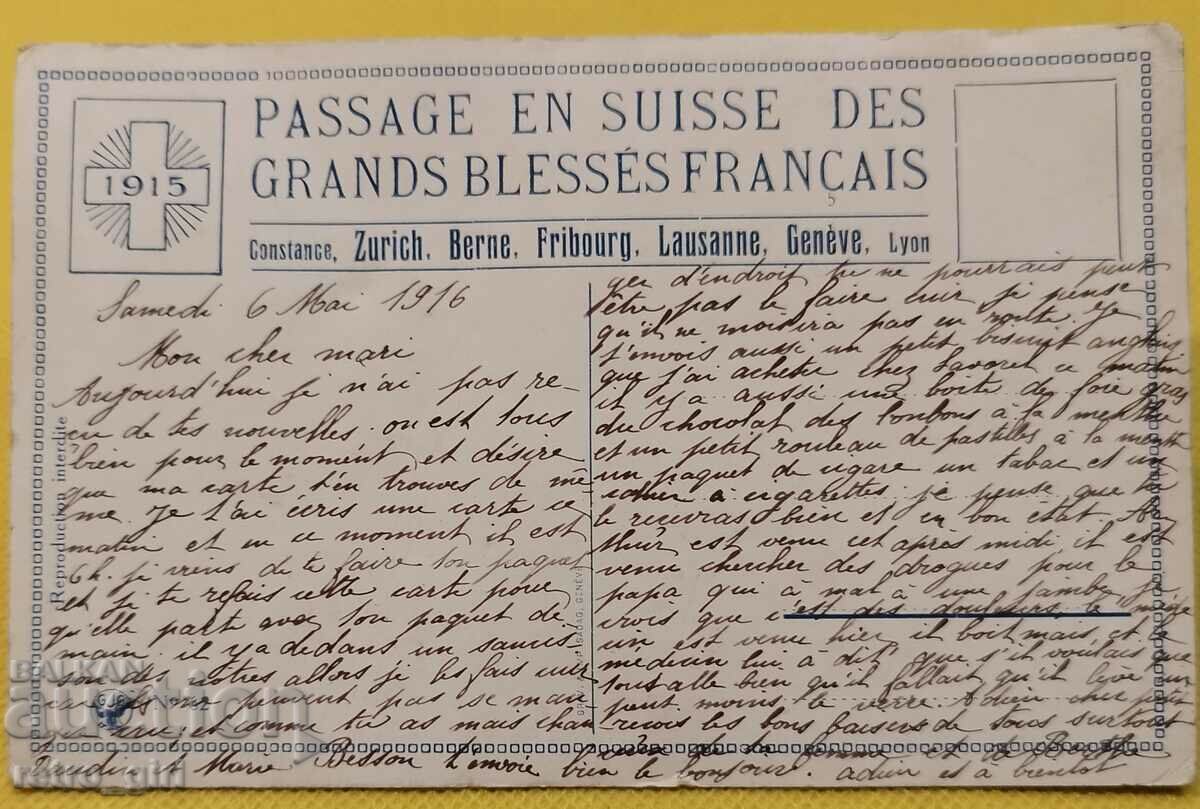 1915
PASSAGE EN SUISSE DES
GRANDS BLESSÉS FRANÇAIS
Constance, Zurich, Berne, Fribourg, Lausanne, Genève, Lyon
Samedi 6 Mai 1916
Mon cher mari
Aujourd'hui je n'ai pas re-
çu de tes nouvelles. on est tous
bien pour le moment et désire
que ma carte t'en trouves de mê-
me. Je t'ai écris une carte ce
matin et en ce moment il est
6h. je viens de te faire ton paquet
et je te refais cette carte pour
qu'elle parte avec ton paquet de-
main. il y a dedans un saucis-
son des notres allors je les fais cuir
peuvent pas se man
et comme tu as mais chan
ger d'endroit tu ne pourrais peut
être pas le faire cuir je pense
qu'il ne moisira pas en route. Je
t'envois aussi un petit biscuit anglais
que j'ai acheter chez Savoret ce matin
il y a aussi une boite de foie gras
du chocolat des bonbons à la menthe
et un petit rouleau de pastilles à la menthe
un paquet de cigare un tabac et un
cahier à cigarettes. je pense que tu
le recevras bien et en bon état. Ar
thur est venu cet après midi il est
venu chercher des drogues pour le
papa qui à mal à une jambe je
crois que c'est des douleurs le
un est venu hier il boit mais, et le
médecin lui à dit que s'il voulait que
tout alle bien qu'il fallait qu'il lève un
peut moins le verre. Adieu cher petit
recois les bons baisers de tous surtout
de ta femme et te
et Marie Besson t'envoie bien le bonjour. adieu et à bientot
Reproduction interdite
GENÈVE
BALKAN
auction
retro_girl